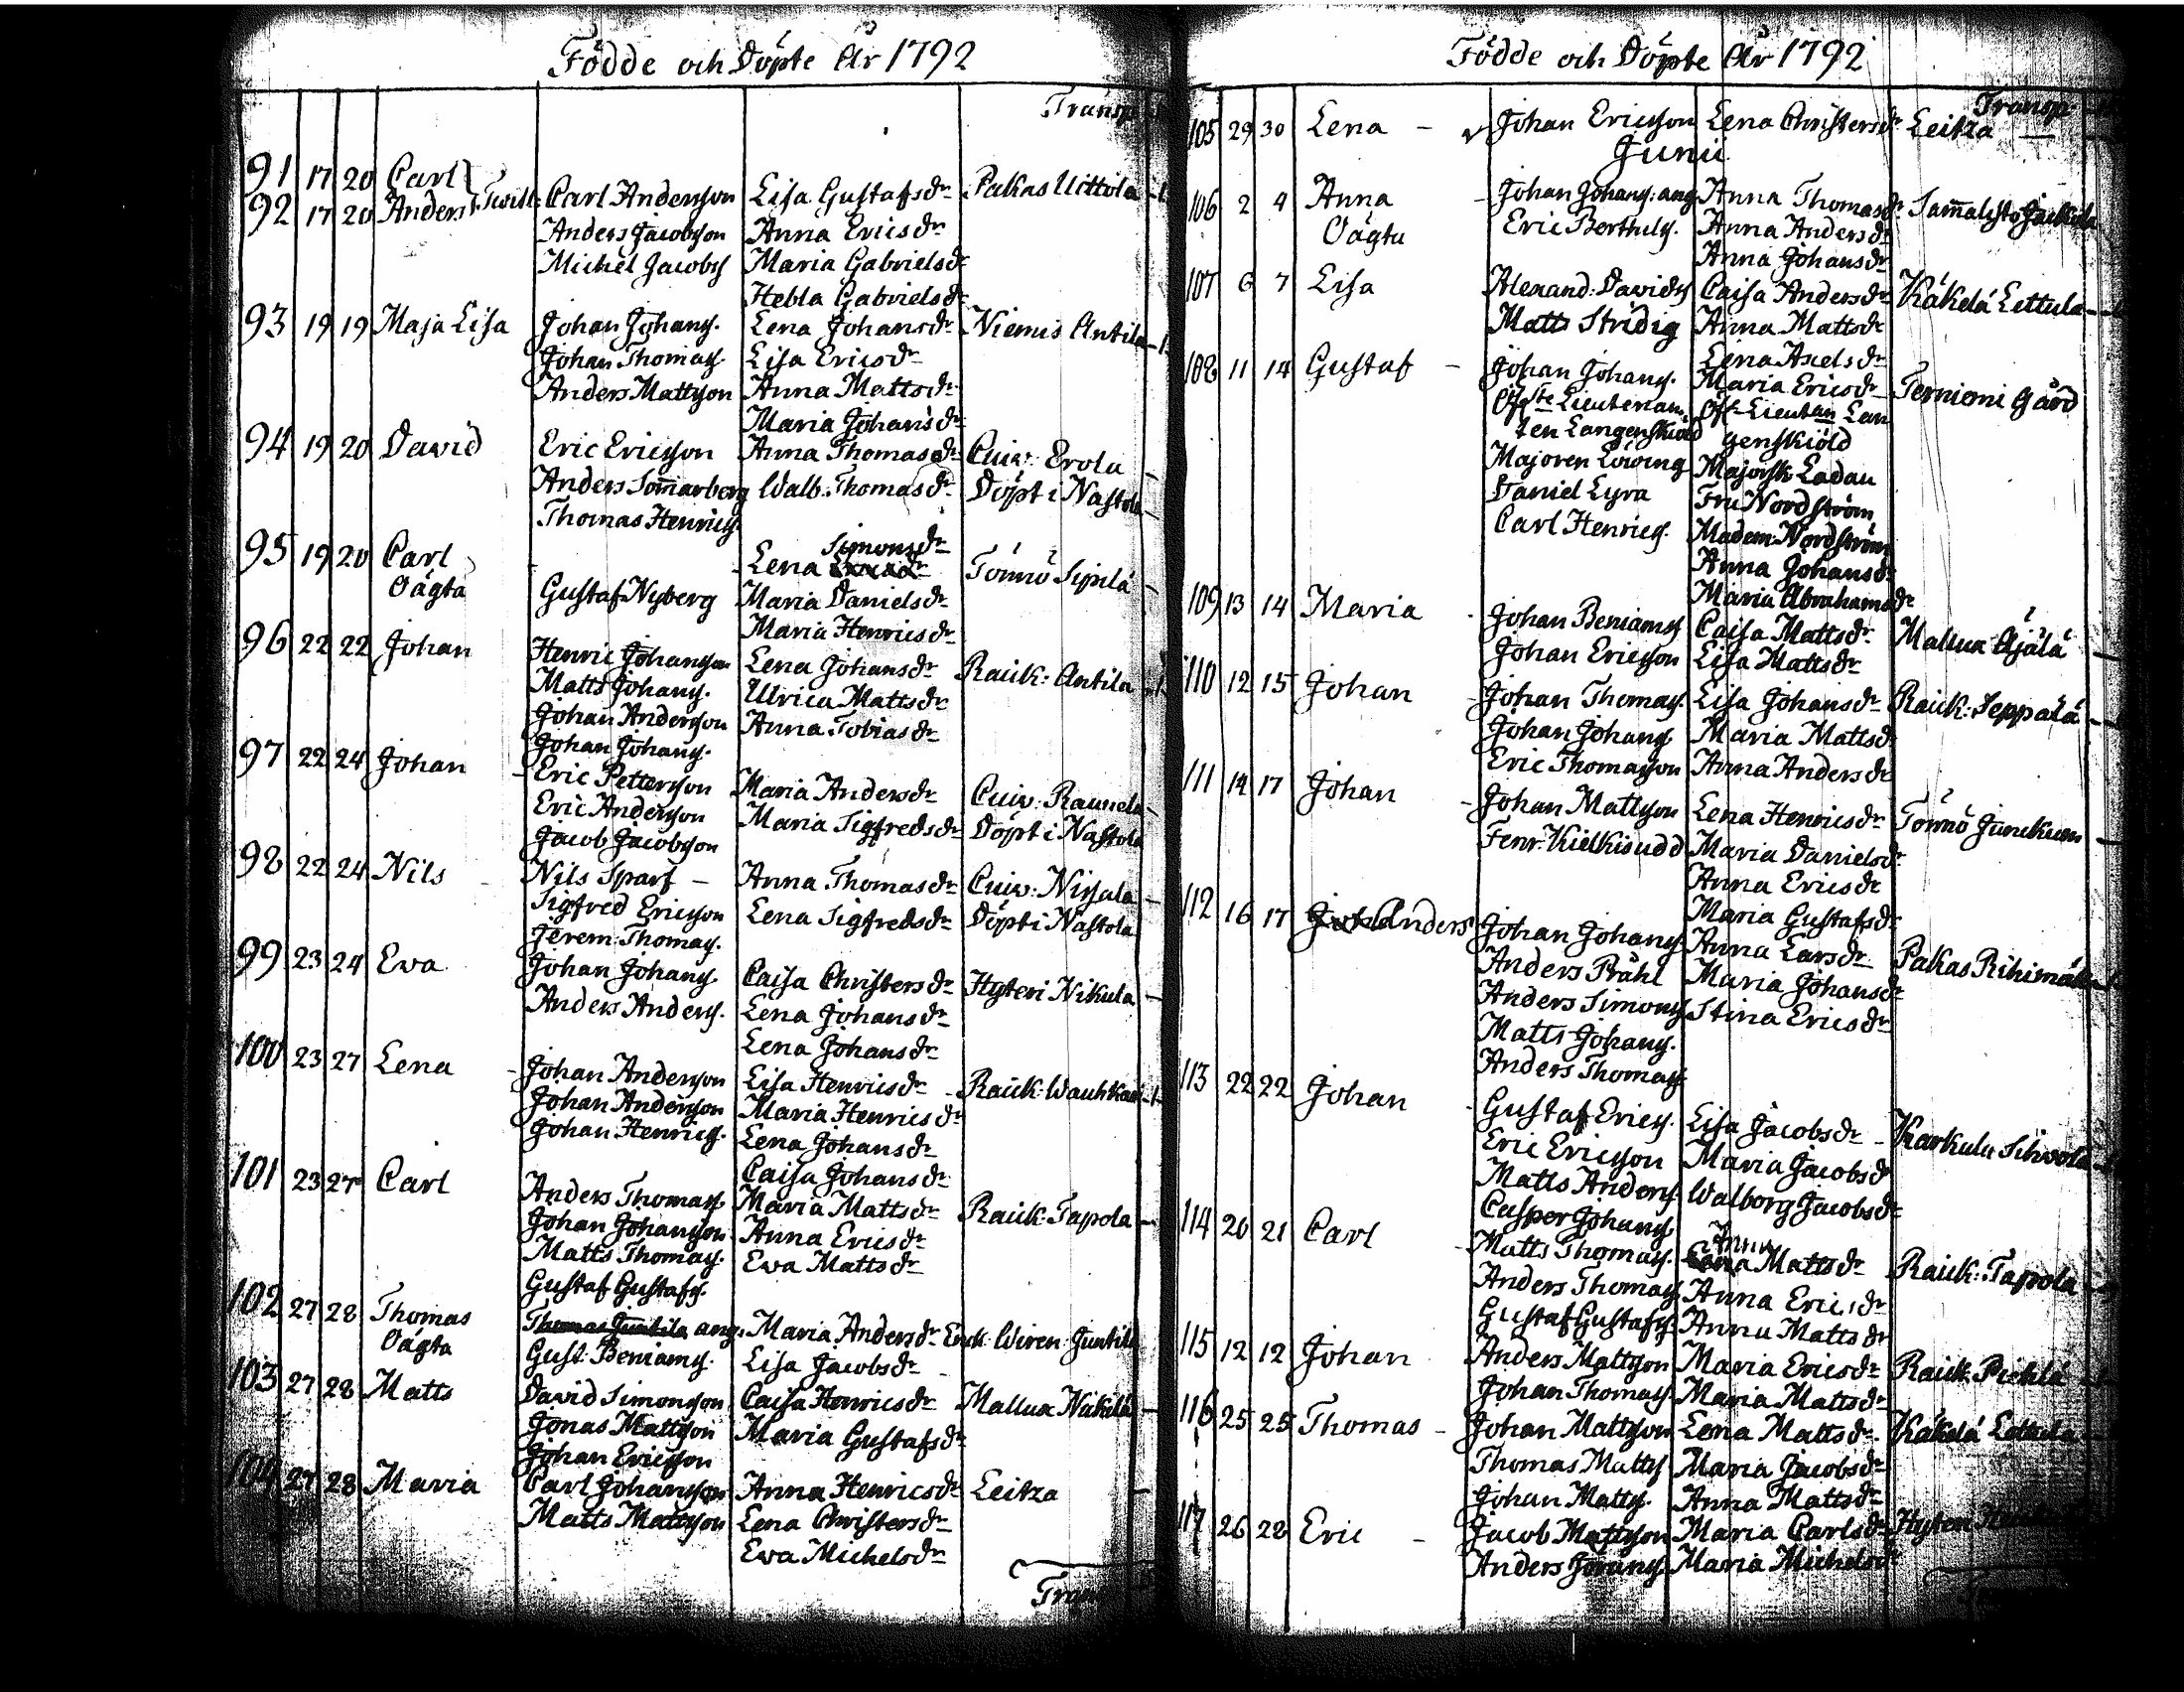 Födde och Döpte År 1792
Transp
91 17 20 Carl
92 17 20 Anders Twill: Carl Andersson Lisa Gustafsdr Pakas Uittola
Anders Jacobsson Anna Ericsdr
Michel Jacobss Maria Gabrielsdr
Hebla Gabrielsdr
93 19 19 Maja Lisa Johan Johanss. Lena Johansdr Niemis Antila
Johan Thomass. Lisa Ericsdr
Anders Mattsson Anna Mattsdr
Maria Johansdr
94 19 20 David Eric Ericsson Anna Thomasdr Cuiv: Erola
Anders Som̄arberg Walb: Thomasdr Döpt i Nastola
Thomas Henrics.
Simonsdr
95 19 20 Carl Lena Tönnö Sipilä
Oägta Gustaf Nyberg Maria Danielsdr
Maria Henricsdr
96 22 22 Johan Henric Johansson Lena Johansdr Raick: Antila
Matts Johanss. Ulrica Mattsdr
Johan Andersson Anna Tobiasdr
Johan Johanss.
97 22 24 Johan Eric Pettersson Maria Andersdr Cuiv: Raunela
Eric Andersson Maria Sigfredsdr Döpt i Nastola
Jacob Jacobsson
98 22 24 Nils Nils Sparf Anna Thomasdr Cuiv: Nirjala
Sigfred Ericsson Lena Sigfredsdr Döpt i Nastola
Jerem: Thomass.
99 23 24 Ewa Johan Johanss. Caisa Christersdr Hyteri Nikula
Anders Anderss. Lena Johansdr
Lena Johansdr
100 23 27 Lena Johan Andersson Lisa Henricsdr Raick: Wauhkon
Johan Andersson Maria Henricsdr
Johan Henrics. Lena Johansdr
Caisa Johansdr
101 23 27 Carl Anders Thomass. Maria Mattsdr Raick: Tapola
Johan Johansson Anna Ericsdr
Matts Thomass. Ewa Mattsdr
Gustaf Gustafs.
102 27 28 Thomas Thomas Juntila ang: Maria Andersdr Enck: Wiren Juntila
Oägta Gust: Beniams. Lisa Jacobsdr
103 27 28 Matts David Simonsson Caisa Henricsdr Mallua Nakila
Jonas Mattsson Maria Gustafsdr
Johan Ericsson
104 27 28 Maria Carl Johansson Anna Henricsdr Leitza
Matts Mattsson Lena Christersdr
Ewa Michelsdr
Födde och Döpte År 1792
Transp
105 29 30 Lena Johan Ericsson Lena Christersdr Leitza
Junii
106 2 4 Anna Johan Johanss: ang Anna Thomasdr Sam̄alisto Jackola
Oägta Eric Berthuls. Anna Andersdr
Anna Johansdr
107 6 7 Lisa Alexand: Davids Caisa Andersdr Käkelä Lettula
Matts Stridig Anna Mattsdr
Lena Axelsdr
108 11 14 Gustaf Johan Johanss. Maria Ericsdr Terniemi Gård
Öfste Lieutenan Öfv Lieutan Lan
ten Langenskiöld genskiöld
Majoren Löwing Majorsk: Ladau
Daniel Lyra Fru Nordström
Carl Henrics. Madem: Nordström
Anna Johansdr
Maria Abrahamsdr
109 13 14 Maria Johan Beniams Caisa Mattsdr Mallua Äjälä
Johan Ericsson Lisa Mattsdr
110 12 15 Johan Johan Thomass. Lisa Johansdr Raick: Seppälä
Johan Johanss Maria Mattsdr
Eric Thomasson Anna Andersdr
111 14 17 Johan Johan Mattsson Lena Henricsdr Tönnö Junckuen
Fenr: Kielkisudd Maria Danielsdr
Anna Ericsdr
Maria Gustafsdr
112 16 17 Anders Johan Johanss Anna Larsdr Pakas Rihimäki
Anders Prähl Maria Johansdr
Anders Simons Stina Ericsdr
Matts Johanss.
Anders Thomass
113 22 22 Johan Gustaf Erics. Lisa Jacobsdr Karkula Silvola
Eric Ericsson Maria Jacobsdr
Matts Anders. Walborg Jacobsdr
Casper Johanss
114 20 21 Carl Matts Thomass. Anna Mattsdr Raick: Tapola
Anders Thomass Anna Ericsdr
Gustaf Gustafs. Anna Mattsdr
115 12 12 Johan Anders Mattsson Maria Ericsdr Raick: Piehlä
Johan Thomass. Maria Mattsdr
116 25 25 Thomas Johan Mattsson Lena Mattsdr Käkelä Lettula
Thomas Matts Maria Jacobsdr
Johan Matts. Anna Mattsdr
117 26 28 Eric Jacob Mattsson Maria Carlsdr Hyteri
Anders Görans. Maria Michelsdr